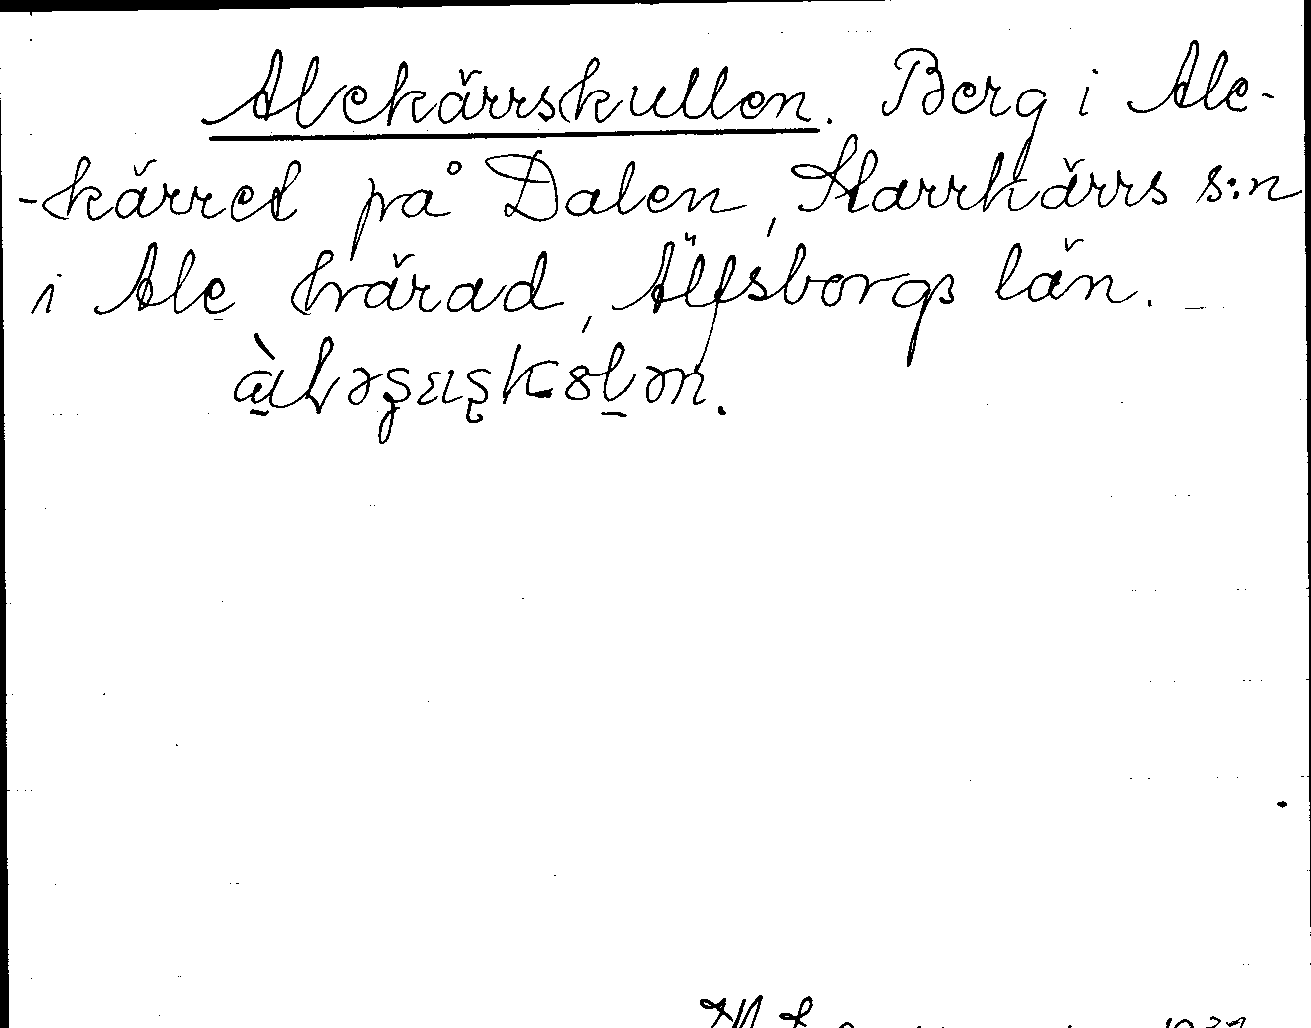 Alekärrskullen. Berg i Ale-
-kärret på Dalen, Starrkärrs s:n
i Ale härad, Älfsborgs län. –